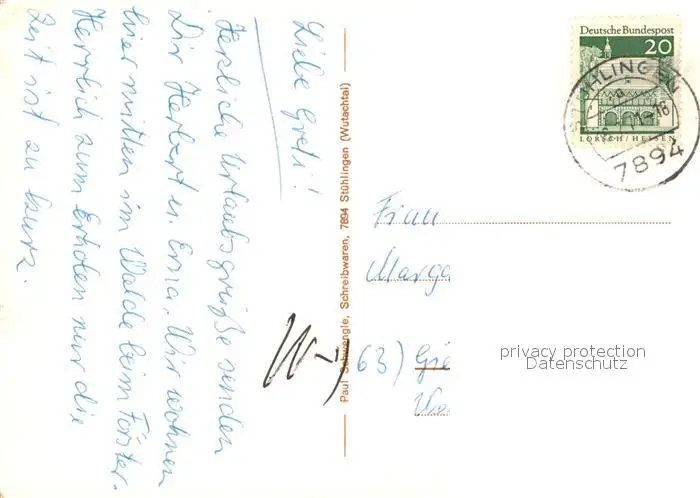 Liebe Gretl!
Herzliche Urlaubsgrüße senden
Dir Herbert u. Erna. Wir wohnen
hier mitten im Walde beim Förster.
Herrlich zum Erholen nur die
Zeit ist zu kurz.
Paul Schwengle, Schreibwaren, 7894 Stühlingen (Wutachtal)
Deutsche Bundespost
20
LORSCH/HESSEN
STÜHLINGEN
-18
7894
Frau
Marga
63) Gie
privacy protection
Datenschutz